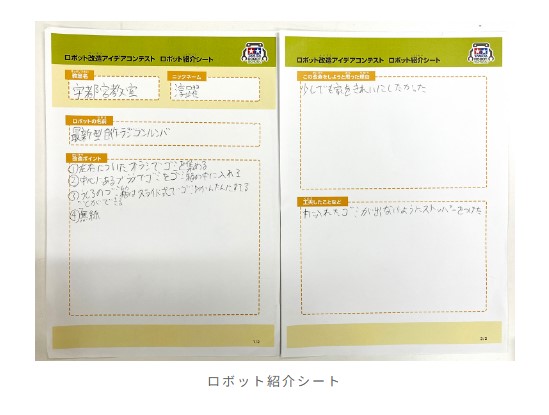 ロボット改造アイデアコンテスト ロボット紹介シート
教室名
宇都宮教室
ニックネーム
ロボットの名前
最新型自作ラジコンルンバ
改造ポイント
①左右についたブラシでゴミを集める
②中心にあるブラシでゴミをゴミ箱の中に入れる
③うしろのゴミ箱はスライド式でゴミをかんたんにすてる
ことができる
④無線
1/2
ロボット改造アイデアコンテスト ロボット紹介シート
この改造をしようと思った理由
少しでも家をきれいにしたかった
工夫したことなど
入れたゴミが出ないようにストッパーをつけた
2/2
ロボット紹介シート